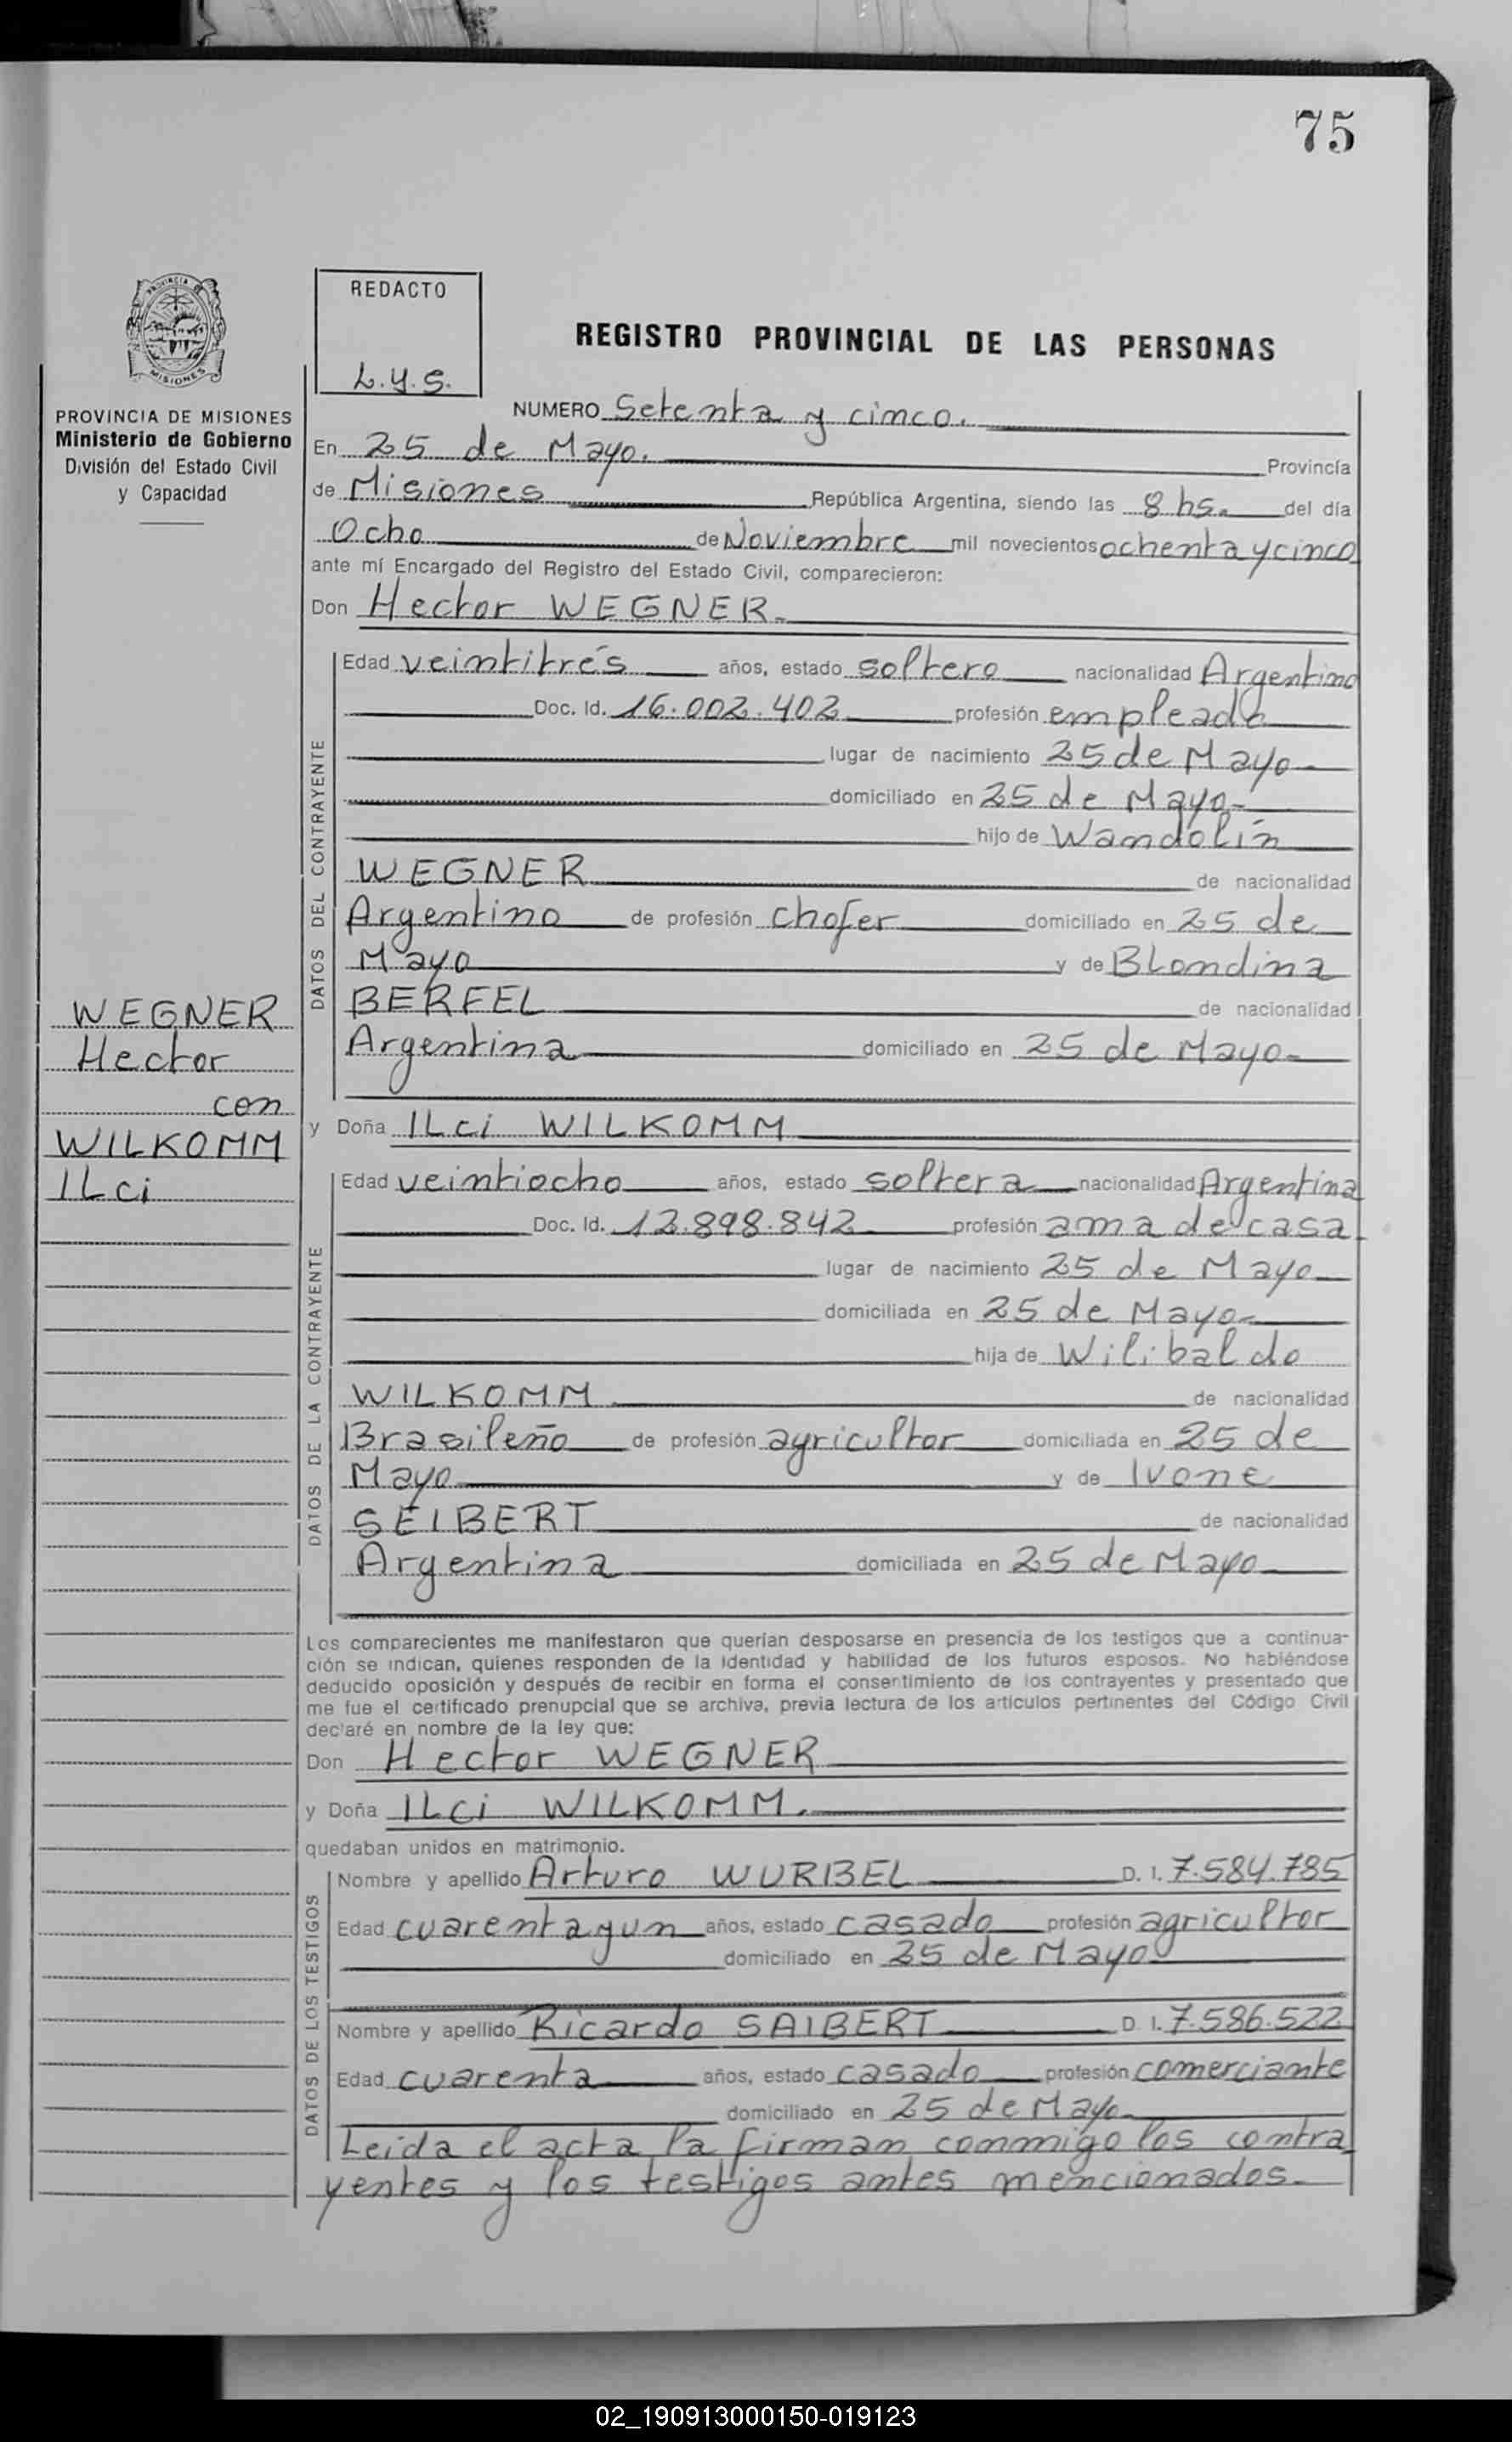 75
REDACTO
L.y.S.
PROVINCIA
MISIONES
PROVINCIA DE MISIONES
Ministerio de Gobierno
División del Estado Civil
y Capacidad
REGISTRO PROVINCIAL DE LAS PERSONAS
NUMERO Setenta y cinco.
En 25 de Mayo. Provincia
de Misiones República Argentina, siendo las 8 hs. del día
Ocho de Noviembre mil novecientos ochenta y cinco
ante mí Encargado del Registro del Estado Civil, comparecieron:
Don Hector WEGNER.
DATOS DEL CONTRAYENTE
Edad veintitrés años, estado soltero nacionalidad Argentino
Doc. Id. 16.002.402 profesión empleado
lugar de nacimiento 25 de Mayo
domiciliado en 25 de Mayo
hijo de Wandolín
WEGNER de nacionalidad
Argentino de profesión chofer domiciliado en 25 de
Mayo y de Blondina
BERFEL de nacionalidad
Argentina domiciliado en 25 de Mayo
WEGNER
Hector
con
WILKOMM
ILci
y Doña ILci WILKOMM
DATOS DE LA CONTRAYENTE
Edad veintiocho años, estado soltera nacionalidad Argentina
Doc. Id. 12.898.842 profesión ama de casa
lugar de nacimiento 25 de Mayo
domiciliada en 25 de Mayo
hija de Wilibaldo
WILKOMM de nacionalidad
Brasileño de profesión agricultor domiciliada en 25 de
Mayo y de Ivone
SEIBERT de nacionalidad
Argentina domiciliada en 25 de Mayo
Los comparecientes me manifestaron que querían desposarse en presencia de los testigos que a continua-
ción se indican, quienes responden de la identidad y habilidad de los futuros esposos. No habiéndose
deducido oposición y después de recibir en forma el consentimiento de los contrayentes y presentado que
me fue el certificado prenupcial que se archiva, previa lectura de los artículos pertinentes del Código Civil
declaré en nombre de la ley que:
Don Hector WEGNER
y Doña ILci WILKOMM.
quedaban unidos en matrimonio.
DATOS DE LOS TESTIGOS
Nombre y apellido Arturo WURBEL D. I. 7.584.785
Edad cuarenta y un años, estado casado profesión agricultor
domiciliado en 25 de Mayo
Nombre y apellido Ricardo SAIBERT D. I. 7.586.522
Edad cuarenta años, estado casado profesión comerciante
domiciliado en 25 de Mayo
Leida el acta la firman conmigo los contra
yentes y los testigos antes mencionados.
02_190913000150-019123